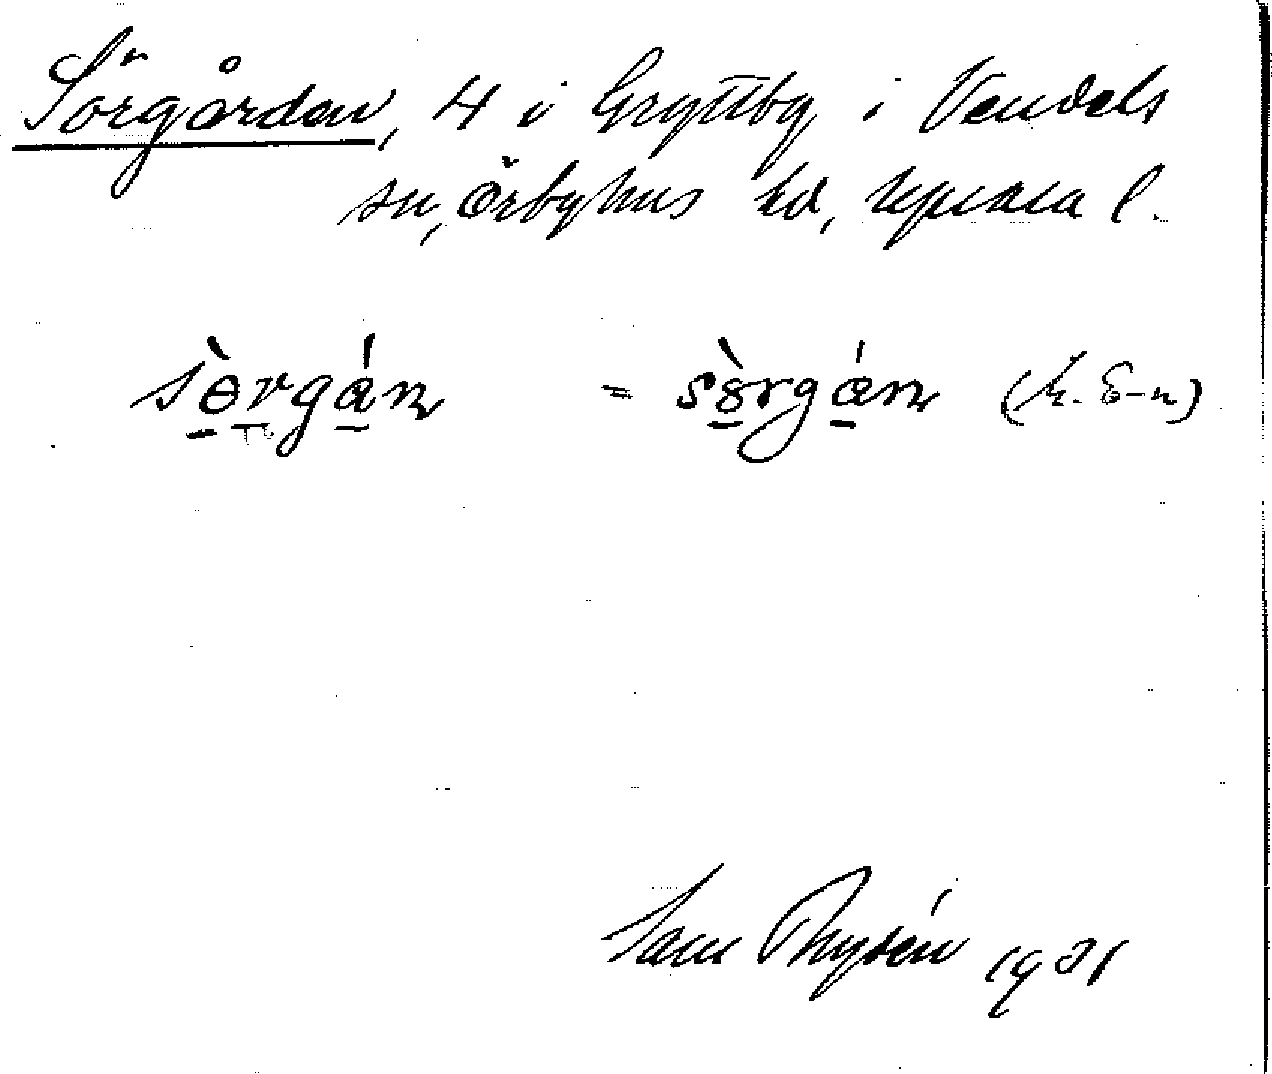 Sörgården, 4 i Gryttby i Vendels
sn, Örbyhus hd, Uppsala l.
sö̀rgán = sö̀rgán
1931